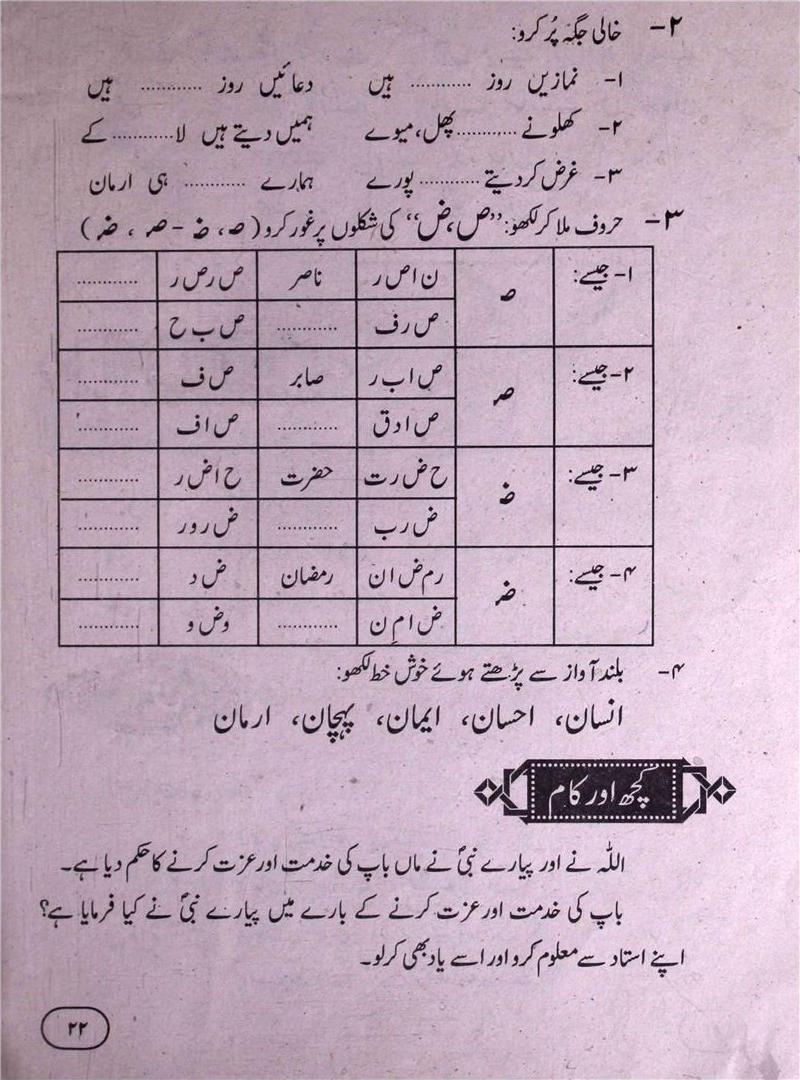 ۲- خالی جگہ پُر کرو:
۱- نمازیں روز ............ ہیں دعائیں روز ............ ہیں
۲- کھلونے ............ پھل، میوے ہمیں دیتے ہیں لا ............ کے
۳- غرض کر دیتے ............ پورے ہمارے ............ ہی ارمان
۳- حروف ملا کر لکھو: ”ص، ض“ کی شکلوں پر غور کرو (صـ، ضـ - صـ، ضـ)
۱- جیسے: صـ ن ا ص ر ناصر ص ر ص ر ............
ص ر ف ............ ص ب ح ............
۲- جیسے: صـ ص ا ب ر صابر ص ف ............
ص ا د ق ............ ص ا ف ............
۳- جیسے: ضـ ح ض ر ت حضرت ح ا ض ر ............
ض ر ب ............ ض ر و ر ............
۴- جیسے: ضـ ر م ض ا ن رمضان ض د ............
ض ا مِ ن ............ و ض و ............
۴- بلند آواز سے پڑھتے ہوئے خوش خط لکھو:
انسان، احسان، ایمان، پہچان، ارمان
کچھ اور کام
اللہ نے اور پیارے نبیؐ نے ماں باپ کی خدمت اور عزت کرنے کا حکم دیا ہے۔
باپ کی خدمت اور عزت کرنے کے بارے میں پیارے نبیؐ نے کیا فرمایا ہے؟
اپنے استاد سے معلوم کرو اور اسے یاد بھی کر لو۔
۲۲